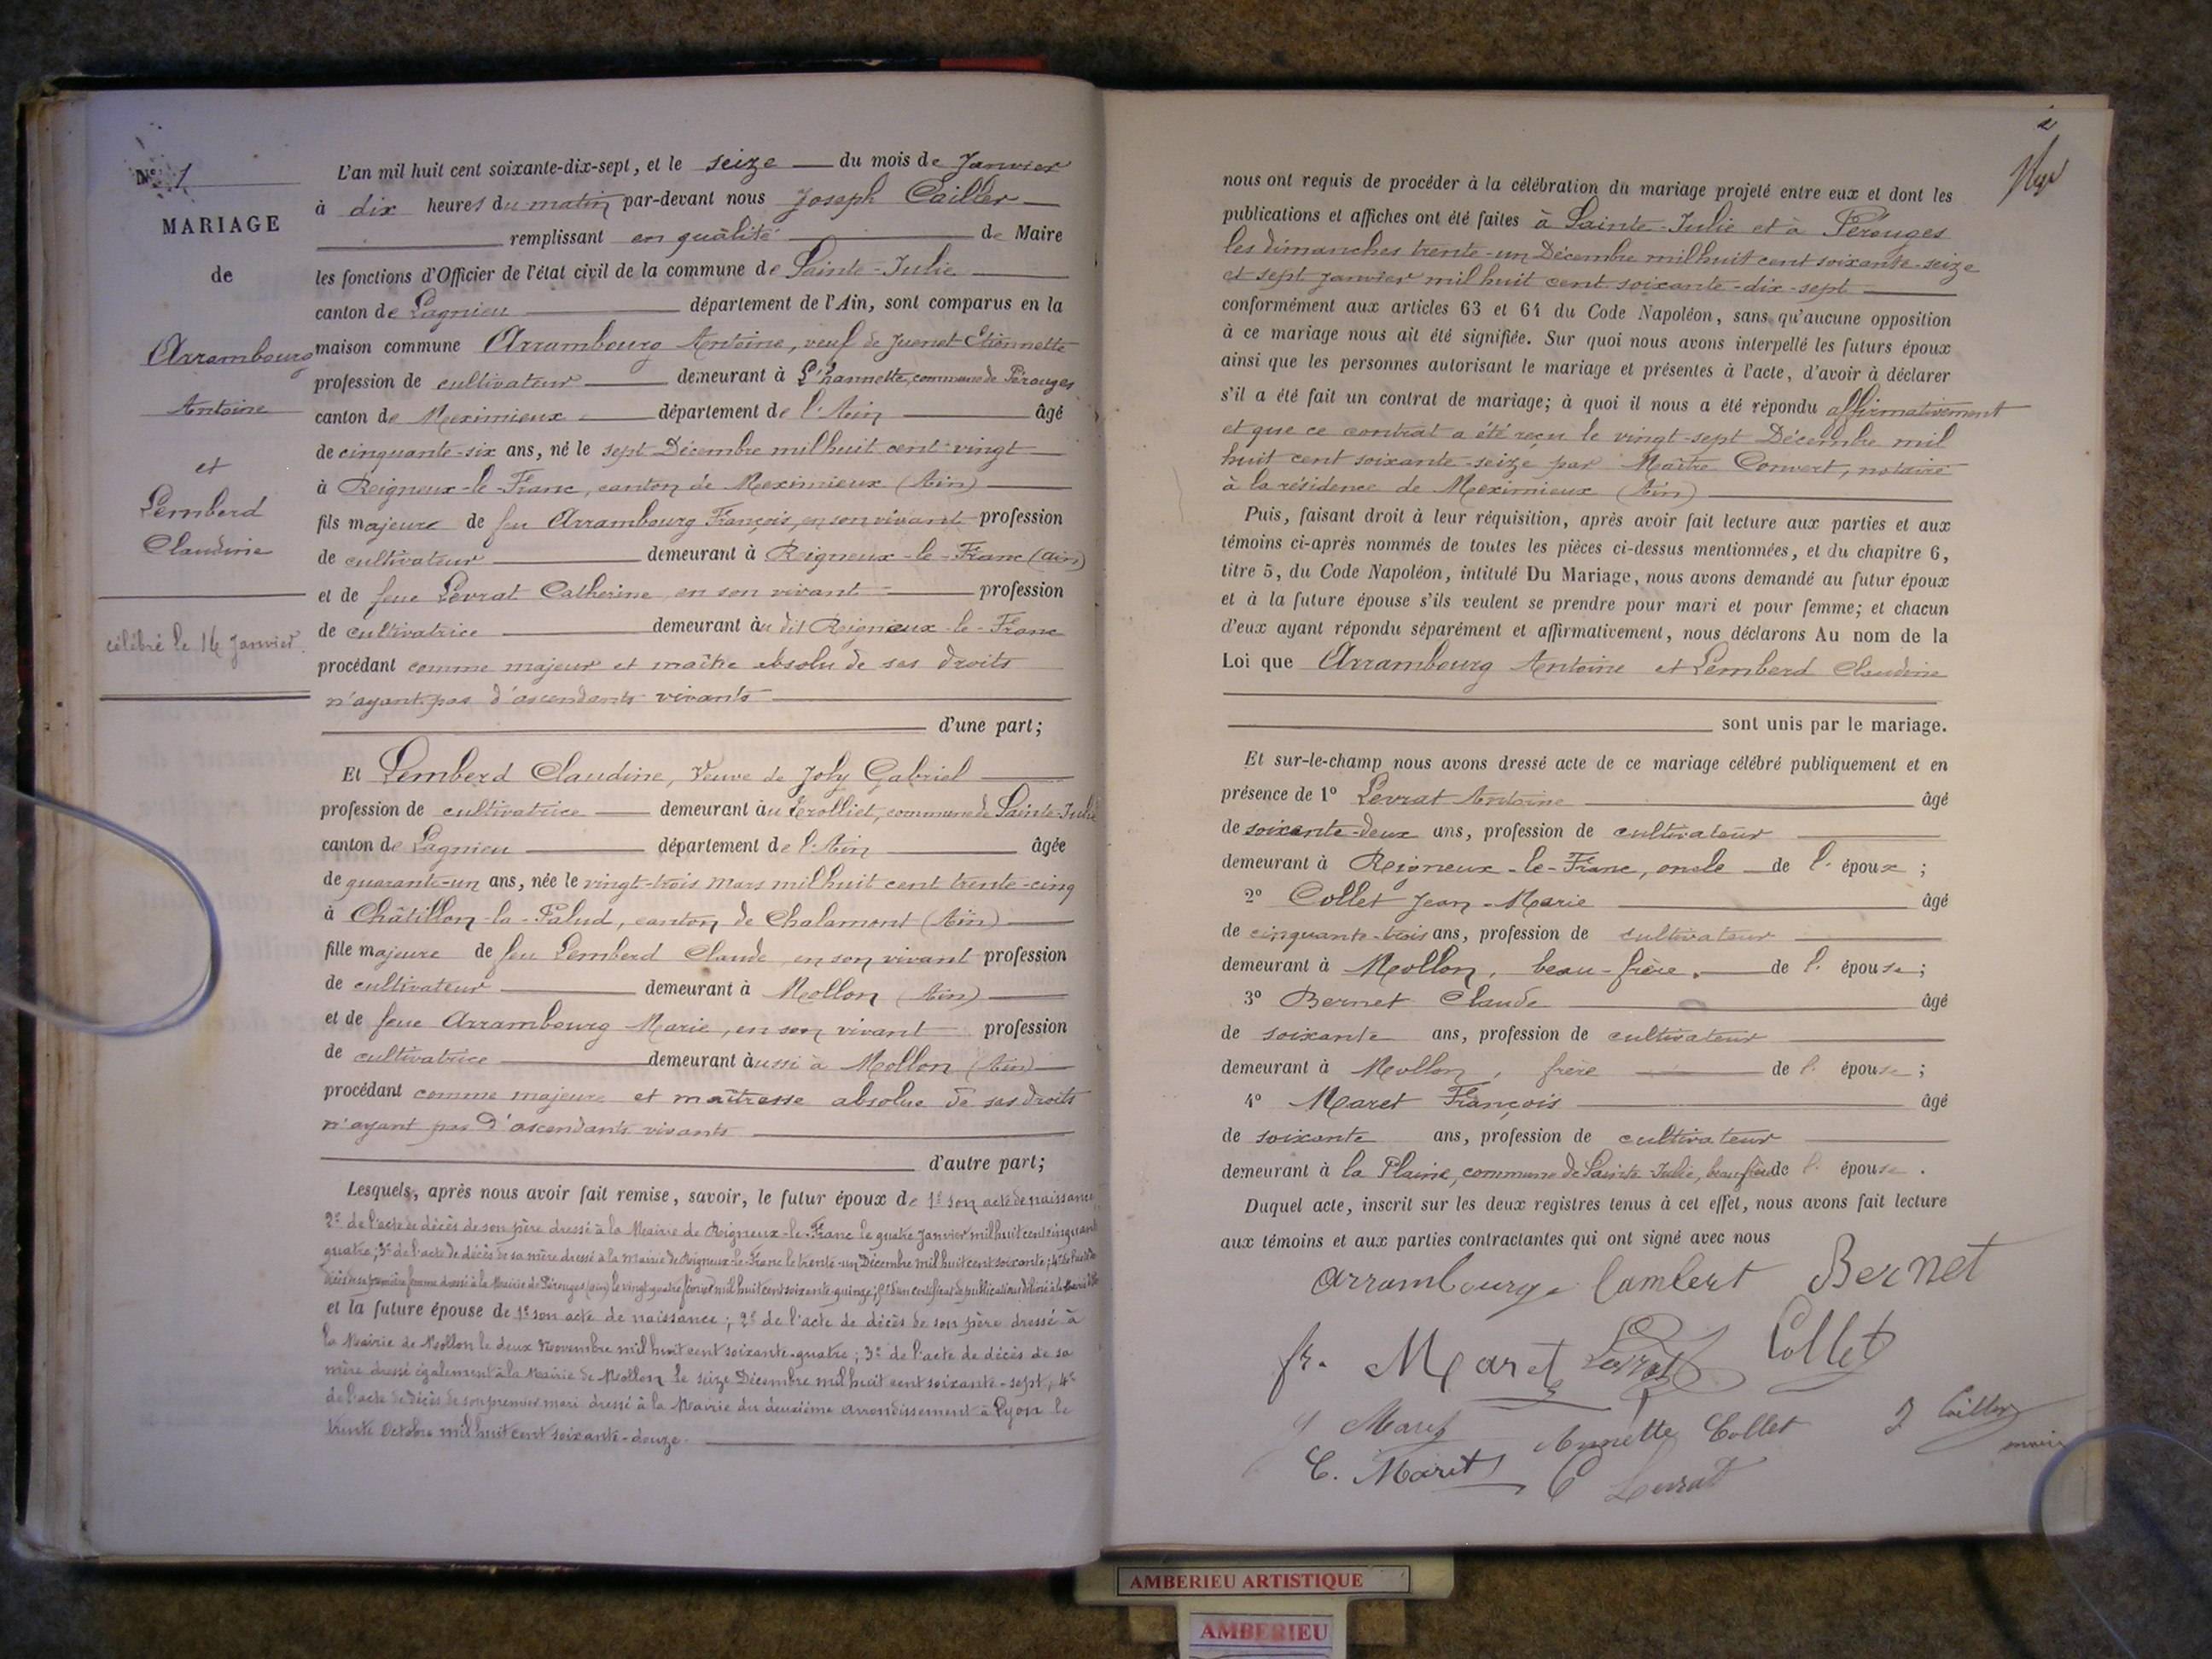 N° 1
MARIAGE
de
Arrambourg
Antoine
et
Lemberd
Claudine
célébré le 16 Janvier.
L'an mil huit cent soixante-dix-sept, et le seize du mois de Janvier
à dix heures du matin par-devant nous Joseph Cailler
remplissant en qualité de Maire
les fonctions d'Officier de l'état civil de la commune de Sainte-Julie
canton de Lagnieu département de l'Ain, sont comparus en la
maison commune Arrambourg Antoine, veuf de Juenet Etiennette
profession de cultivateur demeurant à L'hannette, commune de Pérouges
canton de Meximieux département de l'Ain âgé
de cinquante-six ans, né le sept Décembre mil huit cent vingt
à Rigneux-le-Franc, canton de Meximieux (Ain)
fils majeure de feu Arrambourg François, en son vivant profession
de cultivateur demeurant à Rigneux-le-Franc (Ain)
et de feue Levrat Catherine en son vivant profession
de cultivatrice demeurant au dit Rigneux-le-Franc
procédant comme majeur et maître absolu de ses droits
n'ayant pas d'ascendants vivants
d'une part;
Et Lemberd Claudine, Veuve de Joly Gabriel
profession de cultivatrice demeurant au Trolliet, commune de Sainte-Julie
canton de Lagnieu département de l'Ain âgée
de quarante-un ans, née le vingt-trois Mars mil huit cent trente-cinq
à Châtillon-la-Palud, canton de Chalamont (Ain)
fille majeure de feu Lemberd Claude en son vivant profession
de cultivateur demeurant à Mollon (Ain)
et de feue Arrambourg Marie, en son vivant profession
de cultivatrice demeurant aussi à Mollon (Ain)
procédant comme majeure et maîtresse absolue de ses droits
n'ayant pas d'ascendants vivants
d'autre part;
Lesquels, après nous avoir fait remise, savoir, le futur époux de 1° son acte de naissance
2° de l'acte de décès de son père dressé à la Mairie de Rigneux-le-Franc le quatre Janvier mil huit cent cinquante
quatre; 3° de l'acte de décès de sa mère dressé à la Mairie de Rigneux-le-Franc le trente-un Décembre mil huit cent soixante; 4° de l'acte de
décès de sa première femme dressé à la Mairie de Pérouges (Ain) le vingt-quatre février mil huit cent soixante-quinze; 5° d'un certificat de publications délivré à la Mairie
et la future épouse de 1° son acte de naissance; 2° de l'acte de décès de son père dressé à
la Mairie de Mollon le deux Novembre mil huit cent soixante-quatre; 3° de l'acte de décès de sa
mère dressé également à la Mairie de Mollon le seize Décembre mil huit cent soixante-sept; 4°
de l'acte de décès de son premier mari dressé à la Mairie du deuxième arrondissement à Lyon le
trente Octobre mil huit cent soixante-douze.
2
nous ont requis de procéder à la célébration du mariage projeté entre eux et dont les
publications et affiches ont été faites à Sainte-Julie et à Pérouges
les dimanches trente-un Décembre mil huit cent soixante-seize
et sept Janvier mil huit cent soixante-dix-sept
conformément aux articles 63 et 64 du Code Napoléon, sans qu'aucune opposition
à ce mariage nous ait été signifiée. Sur quoi nous avons interpellé les futurs époux
ainsi que les personnes autorisant le mariage et présentes à l'acte, d'avoir à déclarer
s'il a été fait un contrat de mariage; à quoi il nous a été répondu affirmativement
et que ce contrat a été reçu le vingt-sept Décembre mil
huit cent soixante-seize par Maître Convert, notaire
à la résidence de Meximieux (Ain)
Puis, faisant droit à leur réquisition, après avoir fait lecture aux parties et aux
témoins ci-après nommés de toutes les pièces ci-dessus mentionnées, et du chapitre 6,
titre 5, du Code Napoléon, intitulé Du Mariage, nous avons demandé au futur époux
et à la future épouse s'ils veulent se prendre pour mari et pour femme; et chacun
d'eux ayant répondu séparément et affirmativement, nous déclarons Au nom de la
Loi que Arrambourg Antoine et Lemberd Claudine
sont unis par le mariage.
Et sur-le-champ nous avons dressé acte de ce mariage célébré publiquement et en
présence de 1° Levrat Antoine âgé
de soixante-deux ans, profession de cultivateur
demeurant à Rigneux-le-Franc, oncle de l'époux;
2° Collet Jean-Marie âgé
de cinquante-trois ans, profession de cultivateur
demeurant à Mollon, beau-frère de l'épouse;
3° Bernet Claude âgé
de soixante ans, profession de cultivateur
demeurant à Mollon, frère de l'épouse;
4° Maret François âgé
de soixante ans, profession de cultivateur
demeurant à la Plaine, commune de Sainte-Julie, beau-frère de l'épouse.
Duquel acte, inscrit sur les deux registres tenus à cet effet, nous avons fait lecture
aux témoins et aux parties contractantes qui ont signé avec nous
arrambourg Lambert Bernet
fr. Maret Levrat Collet
Maret Annette Collet J Cailler
maire
C. Maret C Levrat
AMBERIEU ARTISTIQUE
AMBERIEU